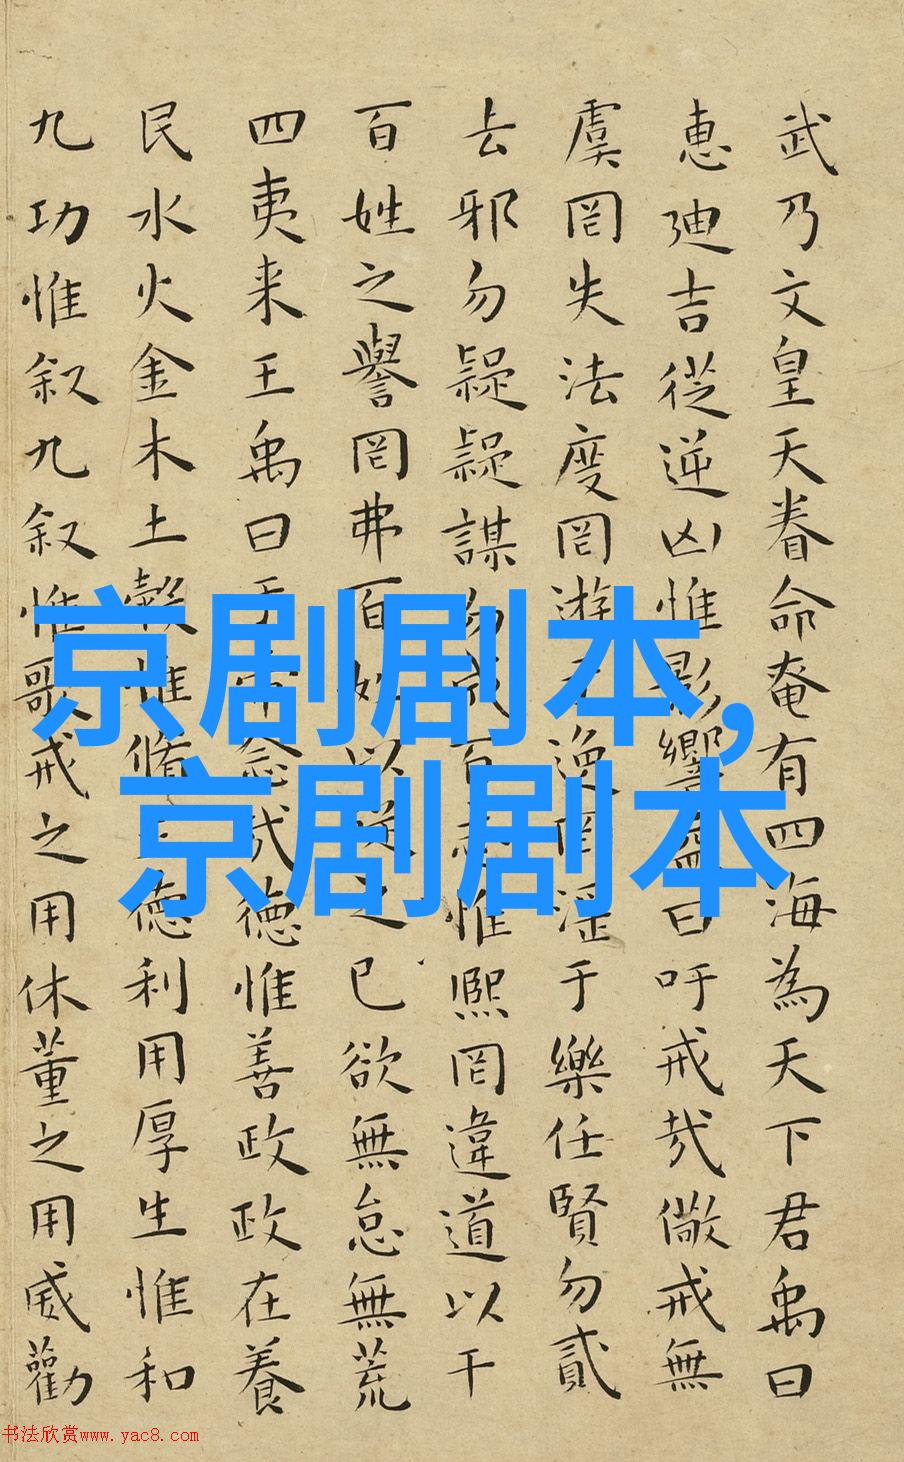 武乃文皇天眷命奄有四海為天下君禹曰
惠迪吉從逆凶惟影響益曰吁戒哉儆戒無
虞罔失法度罔遊于逸罔淫于樂任賢勿貳
去邪勿疑疑謀勿成百志惟熙罔違道以干
百姓之譽罔弗百姓以從之已欲無怠無荒
四夷来王禹曰于帝念哉德惟善政政在養
民水火金木土穀惟脩正德利用厚生惟和
九功惟叙九叙惟歌戒之用休董之用威勸
京剧剧本,
京剧剧本
书法欣赏www.yac8.com